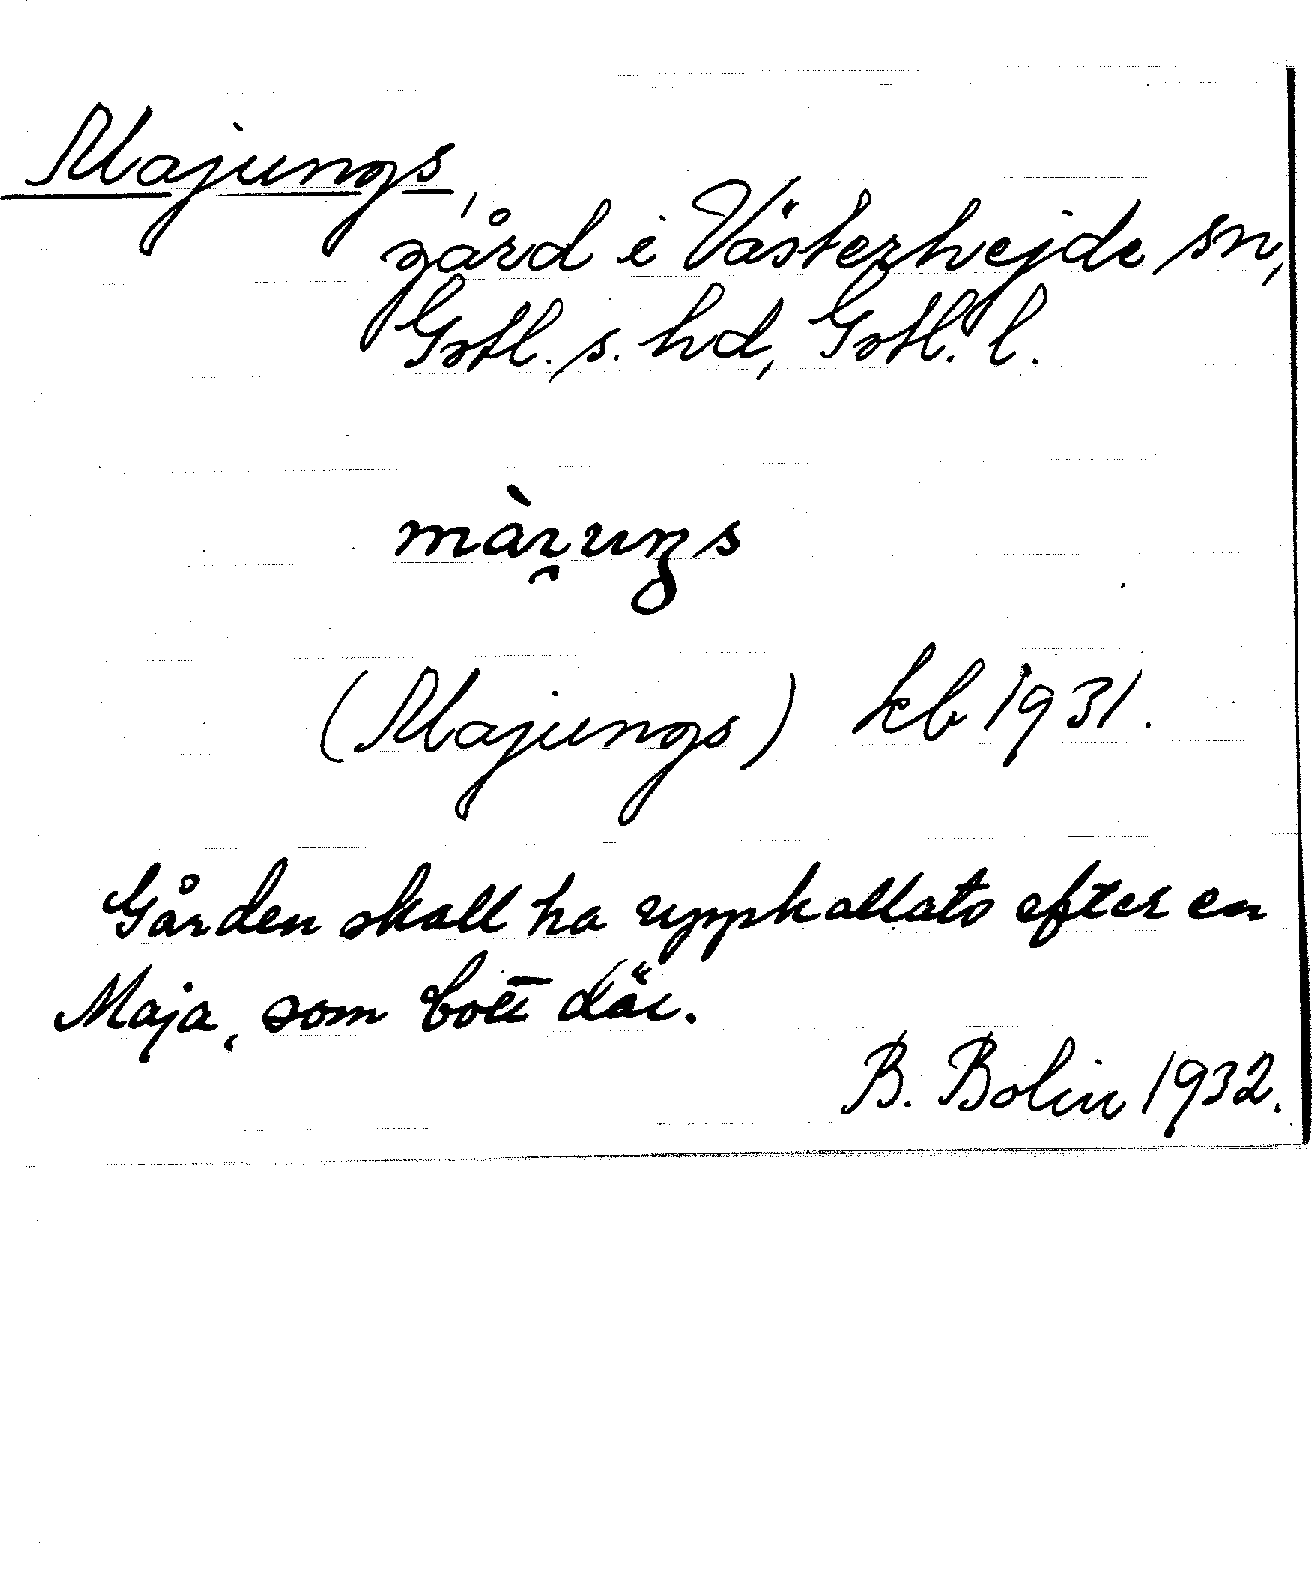 Majungs,
gård i Västerhejde sn,
Gotl. s. hd, Gotl. l.
(Majungs) kb 1931.
Gården skall ha uppkallats efter en
Maja, som bott där.
B. Bolin 1932.